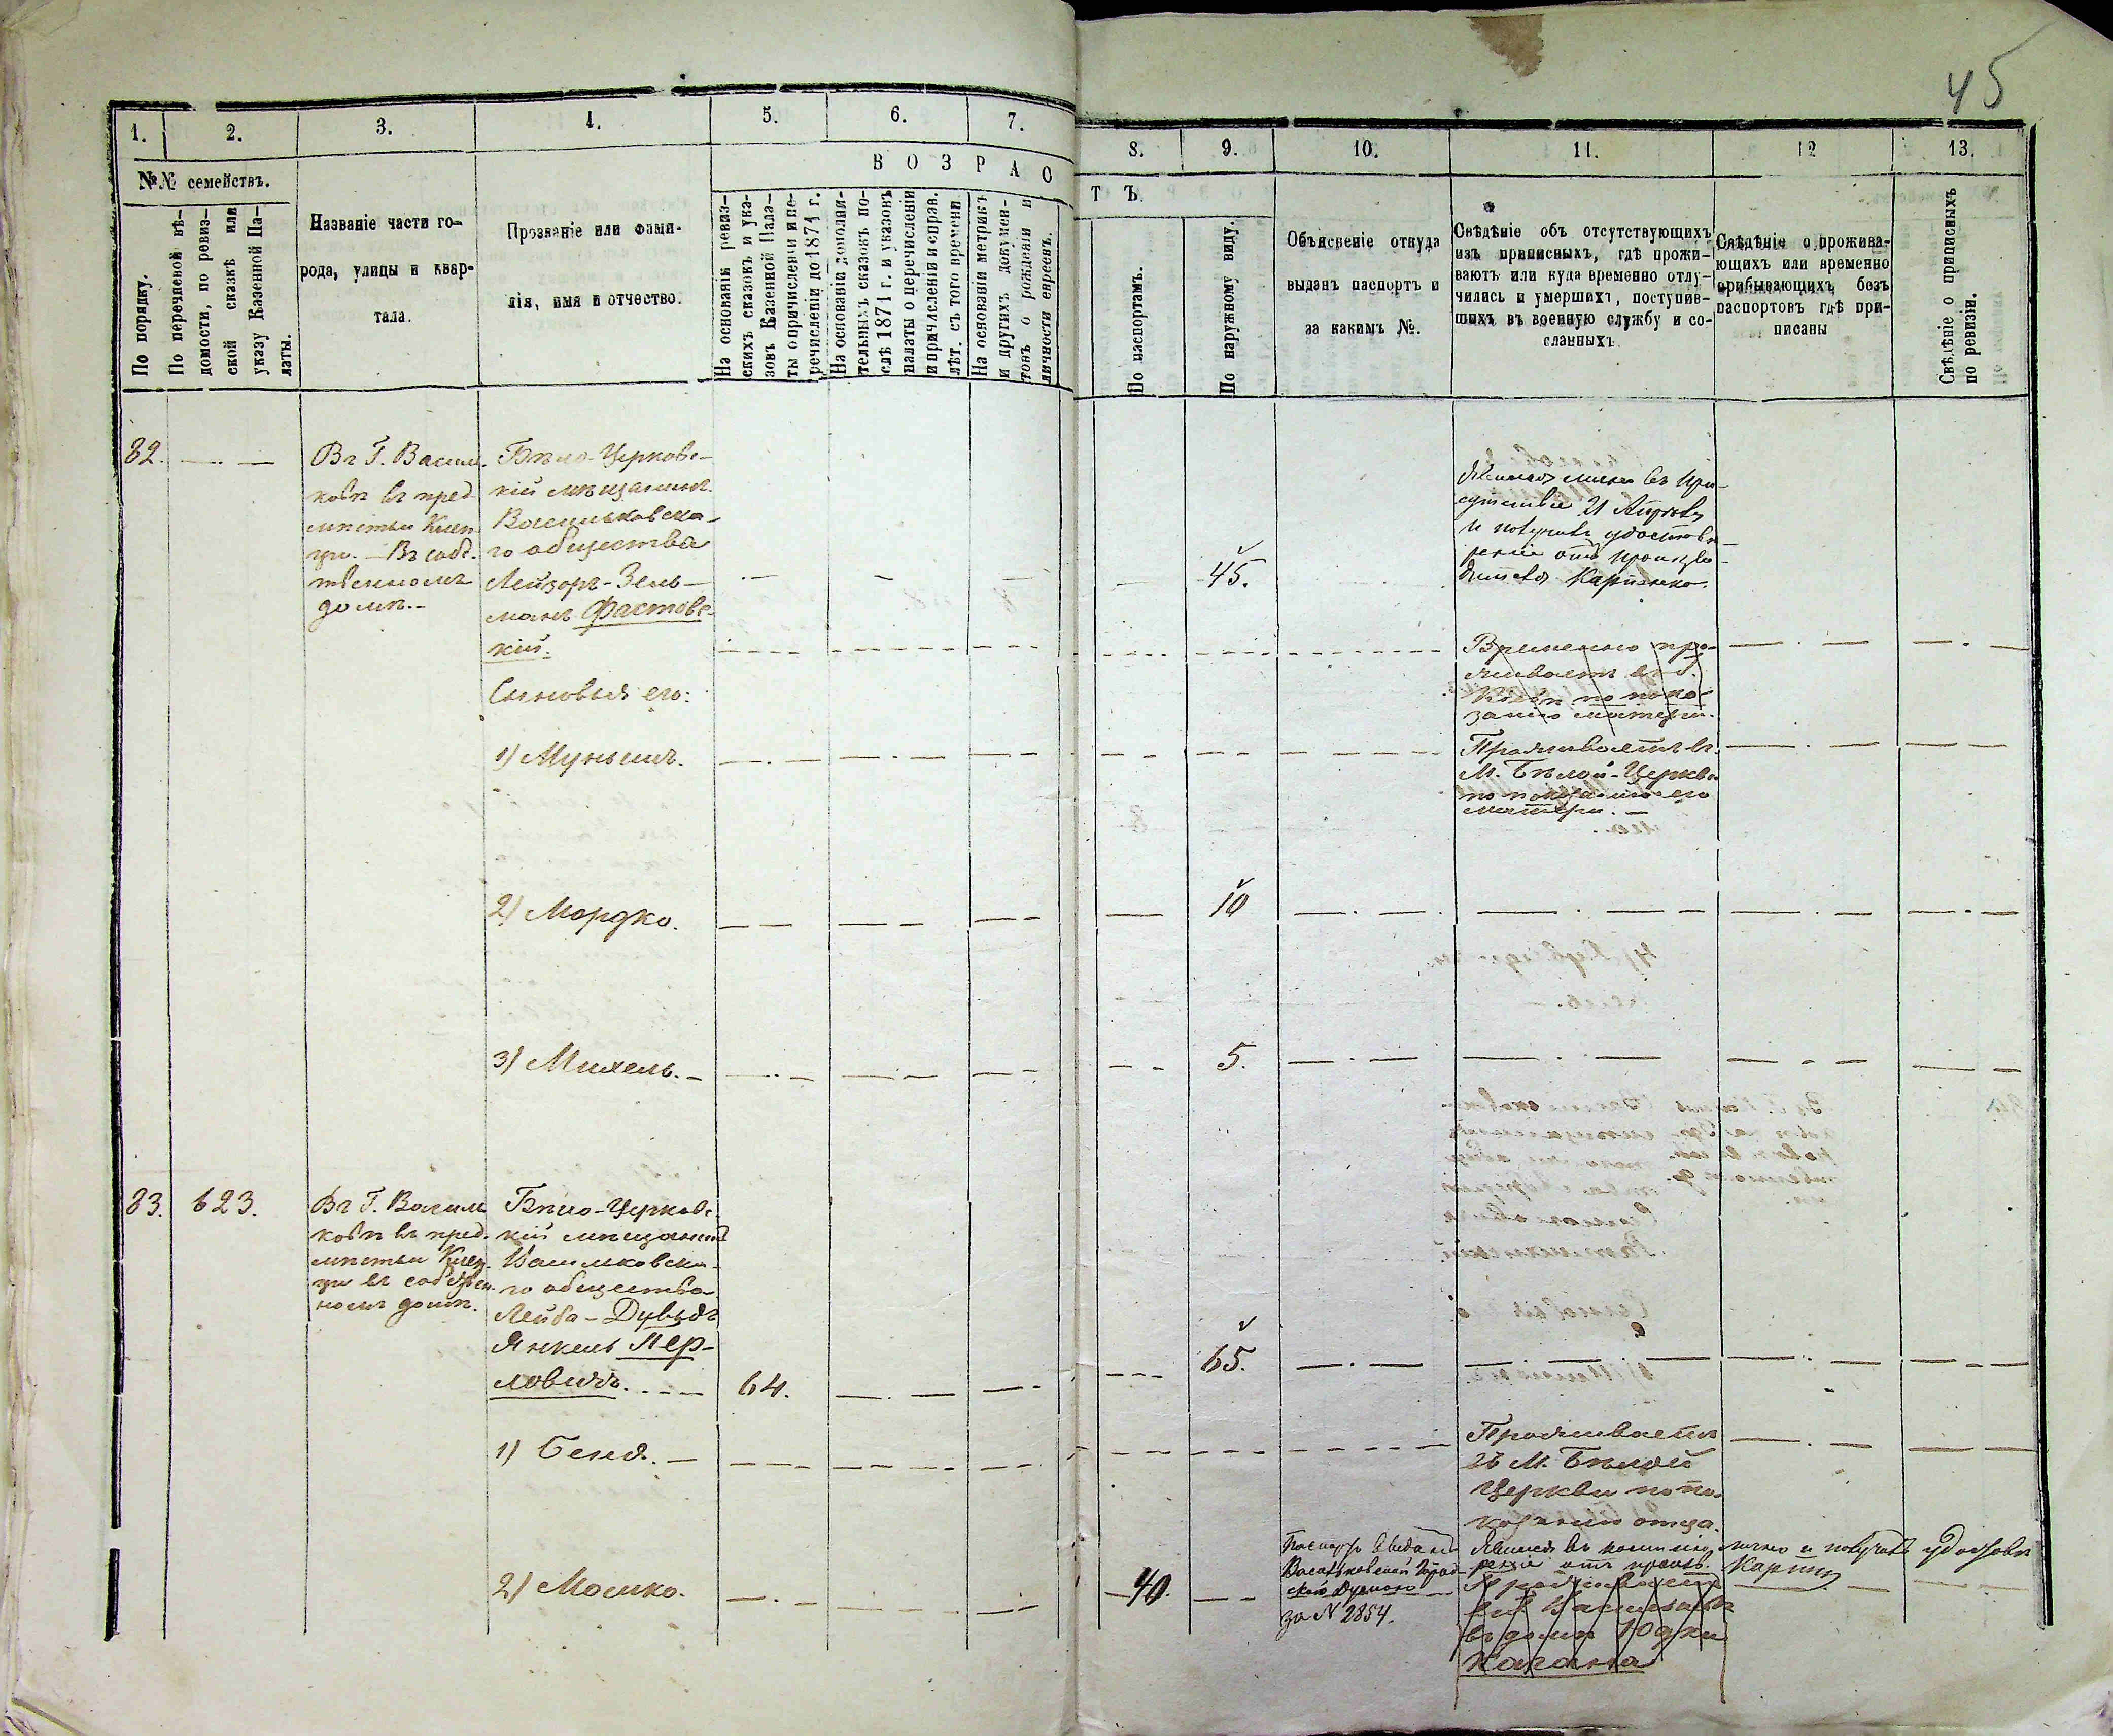 45
1.
2.
3.
4.
5.
6.
7.
8.
9.
10.
11.
12
13.
№№ семействъ.
По порядку.
По перечневой вѣ-
домости, по ревиз-
ской сказкѣ или
указу Казенной Па-
латы.
Названіе части го-
рода, улицы и квар-
тала.
Прозваніе или фами-
лія, имя и отчество.
ВОЗРАС
ТЪ.
На основаніи ревиз-
скихъ сказокъ и ука-
зовъ Казенной Пала-
ты о причисленіи и пе-
речисленіи до 1871 г.
На основаніи дополни-
тельныхъ сказокъ по-
слѣ 1871 г. и указовъ
палаты о перечисленіи
и причисленіи и справ.
лѣт. съ того времени.
На основаніи метрикъ
и другихъ докумен-
товъ о рожденіи и
личности евреевъ.
По паспортамъ.
По наружному виду.
Объясненіе откуда
выданъ паспортъ и
за какимъ №.
Свѣдѣніе объ отсутствующихъ
изъ приписныхъ, гдѣ прожи-
ваютъ или куда временно отлу-
чились и умершихъ, поступив-
шихъ въ военную службу и со-
сланныхъ
Свѣдѣніе о прожива-
ющихъ или временно
прибывающихъ безъ
паспортовъ гдѣ при-
писаны
Свѣдѣніе о приписныхъ
по ревизіи.
82.
Въ Г. Василь-
ковѣ въ пред-
мѣстьи Кнеп-
Въ собс-
твенномъ
домѣ.
Бѣло-Церковс-
кій мѣщанинъ
Васильковска-
го общества
Лейзоръ-Зель-
манъ Фастовс-
кій.
45.
присутствіе 21
и получилъ удостовѣ-
реніе отъ произво-
дителя
Сыновья его:
Временно про-
живаетъ въ г.
по пока-
занію матери.
1) Муньишъ.
Проживаетъ въ
М. Бѣлой-Церкви
по показанію его
матери.
2) Мордко.
10
3) Михель.
5.
83.
623.
Въ Г. Василь-
ковѣ въ пред-
мѣстьи
въ собствен-
номъ домѣ.
Бѣло-Церковс-
кій мѣщанинъ
Васильковска-
го общества
Лейба-Дувидъ
Янкель Пер-
ловичъ.
64.
65.
1) Беня.
Проживаетъ
въ М. Бѣлой
Церкви по по-
казанію отца.
2) Мошко.
40.
Паспортъ выданъ
Васильковской Город-
ской Думою
за № 2854.
лично и получилъ удостовѣ-
реніе отъ
Проживаетъ
въ г. Васильковѣ
въ домѣ Юдки
Кагана